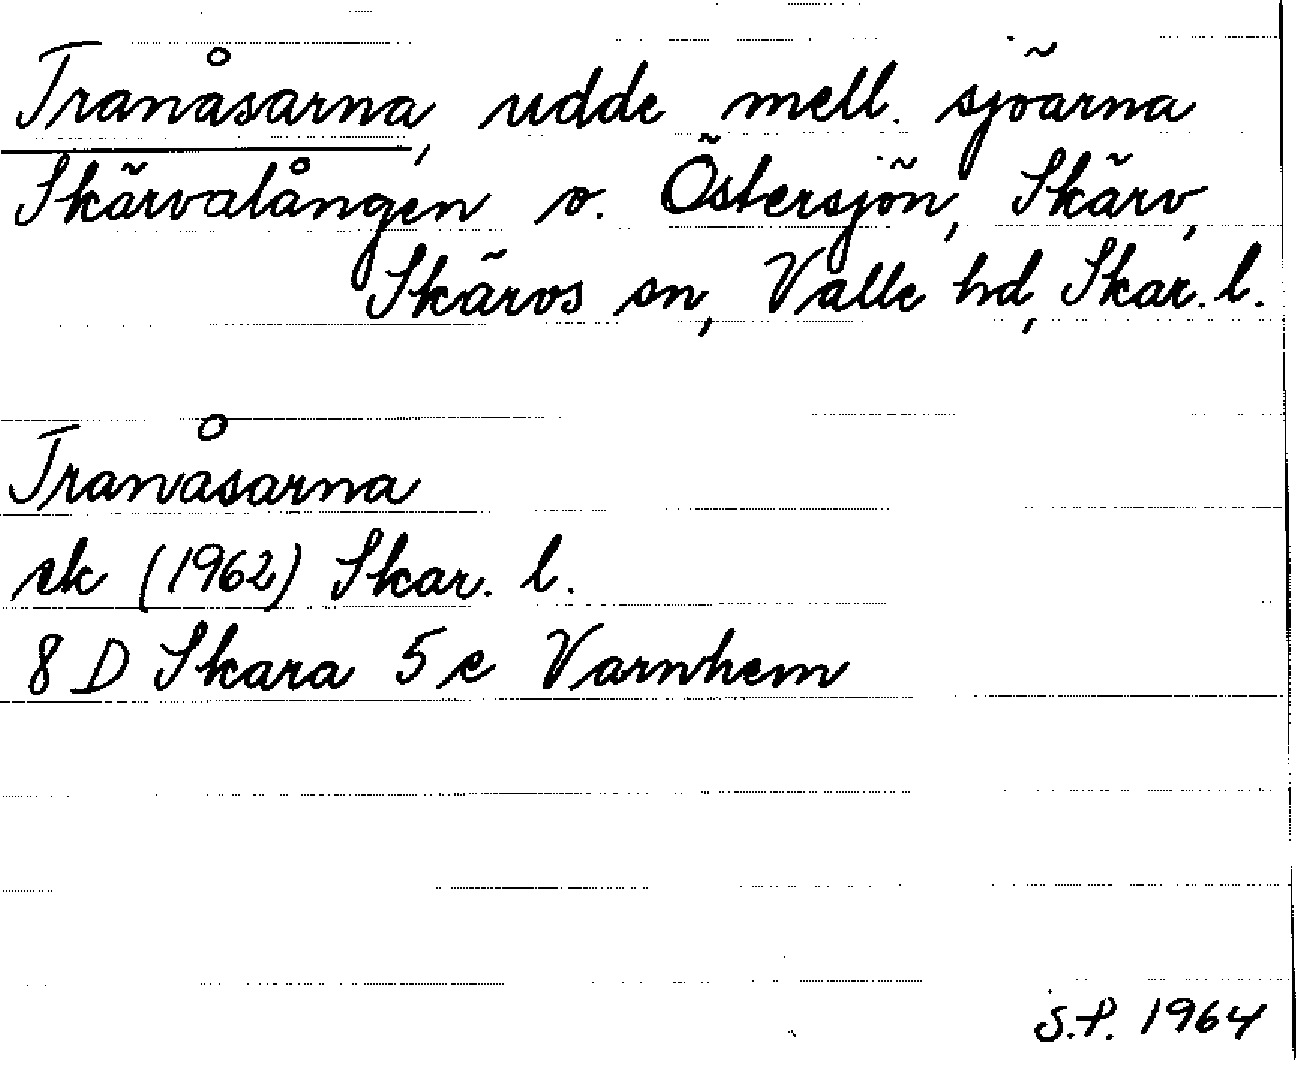 Tranåsarna, udde mell. sjöarna
Skärvalången o. Östersjön, Skärv,
Skärvs sn, Valle hd, Skar. l.
Tranåsarna
ek (1962) Skar. l.
8 D Skara 5 e Varnhem
S.P. 1964